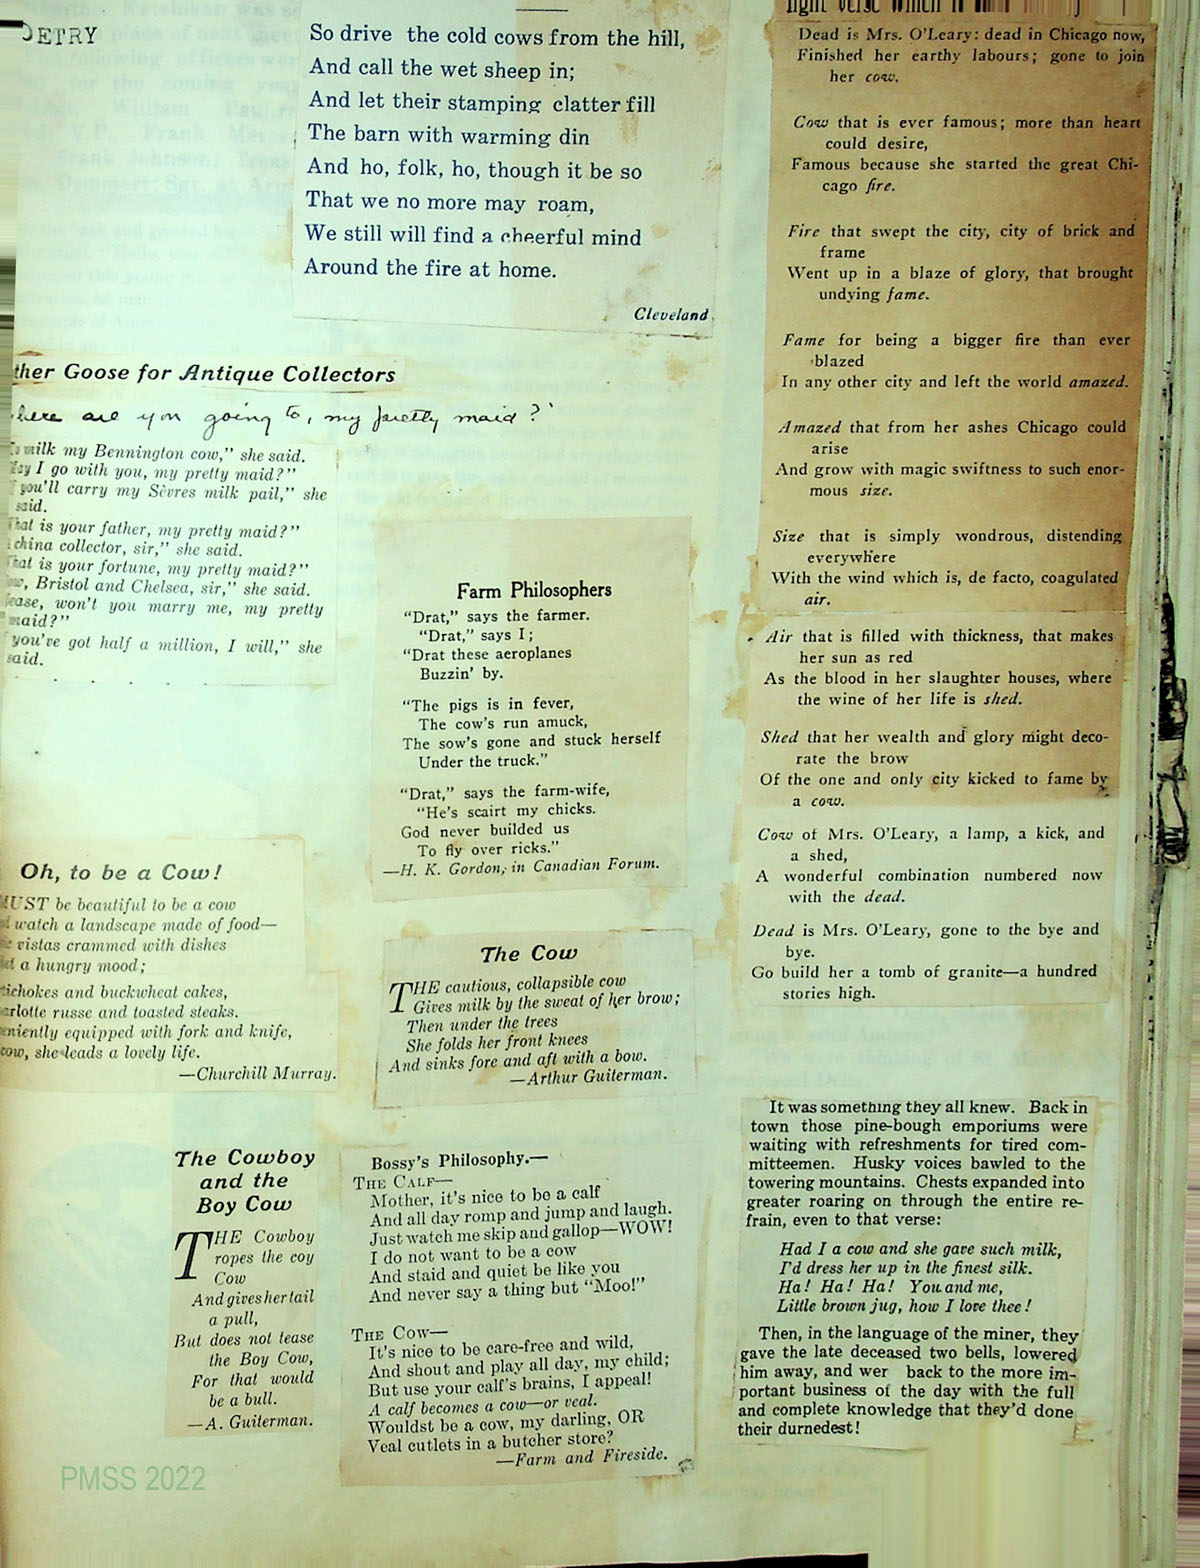 POETRY
So drive the cold cows from the hill,
And call the wet sheep in;
And let their stamping clatter fill
The barn with warming din
And ho, folk, ho, though it be so
That we no more may roam,
We still will find a cheerful mind
Around the fire at home.
Cleveland
ther Goose for Antique Collectors
here are you going to, my pretty maid?"
milk my Bennington cow," she said.
May I go with you, my pretty maid?"
you'll carry my Sèvres milk pail," she
said.
What is your father, my pretty maid?"
china collector, sir," she said.
What is your fortune, my pretty maid?"
Bristol and Chelsea, sir," she said.
ease, won't you marry me, my pretty
maid?"
you've got half a million, I will," she
said.
Oh, to be a Cow!
MUST be beautiful to be a cow
watch a landscape made of food—
vistas crammed with dishes
a hungry mood;
tichokes and buckwheat cakes,
arlotte russe and toasted steaks.
eniently equipped with fork and knife,
cow, she leads a lovely life.
—Churchill Murray.
The Cowboy
and the
Boy Cow
THE Cowboy
ropes the coy
Cow
And gives her tail
a pull,
But does not tease
the Boy Cow,
For that would
be a bull.
—A. Guiterman.
Farm Philosophers
"Drat," says the farmer.
"Drat," says I;
"Drat these aeroplanes
Buzzin' by.
"The pigs is in fever,
The cow's run amuck,
The sow's gone and stuck herself
Under the truck."
"Drat," says the farm-wife,
"He's scairt my chicks.
God never builded us
To fly over ricks."
—H. K. Gordon, in Canadian Forum.
The Cow
THE cautious, collapsible cow
Gives milk by the sweat of her brow;
Then under the trees
She folds her front knees
And sinks fore and aft with a bow.
—Arthur Guiterman.
Bossy's Philosophy.—
THE CALF—
Mother, it's nice to be a calf
And all day romp and jump and laugh.
Just watch me skip and gallop—WOW!
I do not want to be a cow
And staid and quiet be like you
And never say a thing but "Moo!"
THE COW—
It's nice to be care-free and wild,
And shout and play all day, my child;
But use your calf's brains, I appeal!
A calf becomes a cow—or veal.
Wouldst be a cow, my darling, OR
Veal cutlets in a butcher store?
—Farm and Fireside.
light verse which is
Dead is Mrs. O'Leary: dead in Chicago now,
Finished her earthy labours; gone to join
her cow.
Cow that is ever famous; more than heart
could desire,
Famous because she started the great Chi-
cago fire.
Fire that swept the city, city of brick and
frame
Went up in a blaze of glory, that brought
undying fame.
Fame for being a bigger fire than ever
blazed
In any other city and left the world amazed.
Amazed that from her ashes Chicago could
arise
And grow with magic swiftness to such enor-
mous size.
Size that is simply wondrous, distending
everywhere
With the wind which is, de facto, coagulated
air.
Air that is filled with thickness, that makes
her sun as red
As the blood in her slaughter houses, where
the wine of her life is shed.
Shed that her wealth and glory might deco-
rate the brow
Of the one and only city kicked to fame by
a cow.
Cow of Mrs. O'Leary, a lamp, a kick, and
a shed,
A wonderful combination numbered now
with the dead.
Dead is Mrs. O'Leary, gone to the bye and
bye.
Go build her a tomb of granite—a hundred
stories high.
It was something they all knew. Back in
town those pine-bough emporiums were
waiting with refreshments for tired com-
mitteemen. Husky voices bawled to the
towering mountains. Chests expanded into
greater roaring on through the entire re-
frain, even to that verse:
Had I a cow and she gave such milk,
I'd dress her up in the finest silk.
Ha! Ha! Ha! You and me,
Little brown jug, how I love thee!
Then, in the language of the miner, they
gave the late deceased two bells, lowered
him away, and wer back to the more im-
portant business of the day with the full
and complete knowledge that they'd done
their durnedest!
PMSS 2022